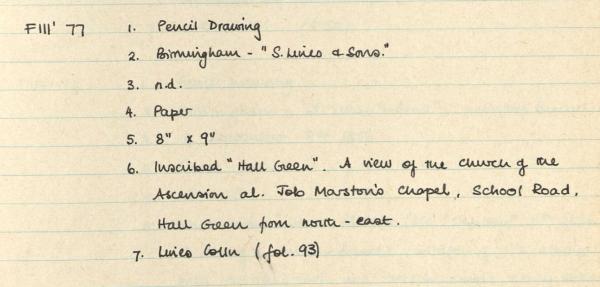 FIII' 77 1. Pencil Drawing
2. Birmingham - "S. Lines & Sons."
3. n.d.
4. Paper
5. 8" x 9"
6. Inscribed "Hall Green". A view of the church of the
Ascension al. Job Marston's Chapel, School Road,
Hall Green from north-east.
7. Lines Colln (fol. 93)